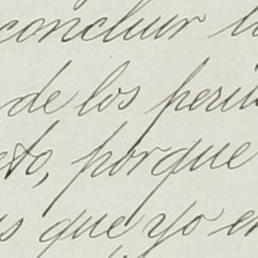 concluir l
de los peri
to, porque
s que yo en